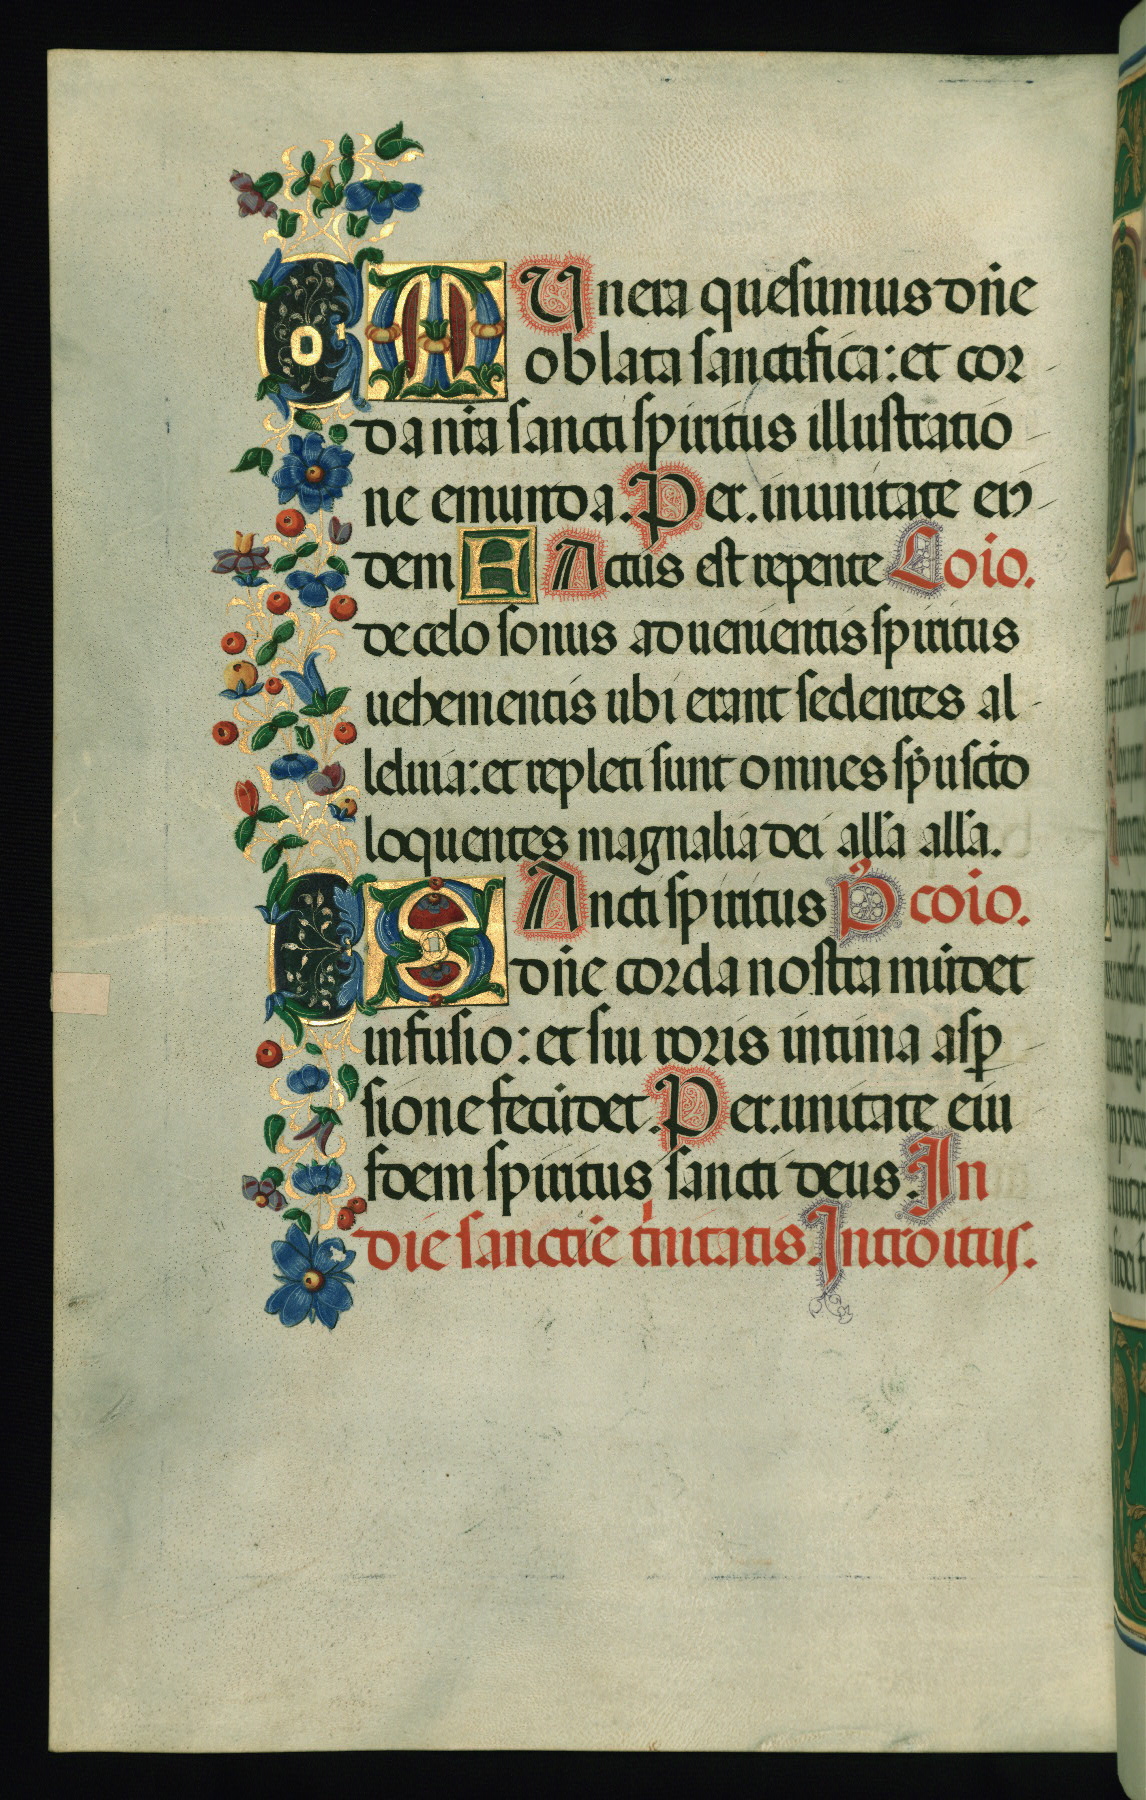 MUnera quesumus dn̄e
oblata sanctifica: et cor
da nr̄a sancti spiritus illustratio
ne emunda. Per. inunitate eius
dem FActus est repente Coīo.
de celo sonus aduenientis spiritus
uehementis ubi erant sedentes al
leluia: et repleti sunt omnes sp̄u sc̄to
loquentes magnalia dei all'a all'a.
SAncti spiritus P̄ coīo.
dn̄e corda nostra mūdet
infusio: et sui roris intima asp̱
sione fecūdet. Per. unitate eiu
sdem spiritus sancti deus. In
die sanctīe trinitatis. Introitus.